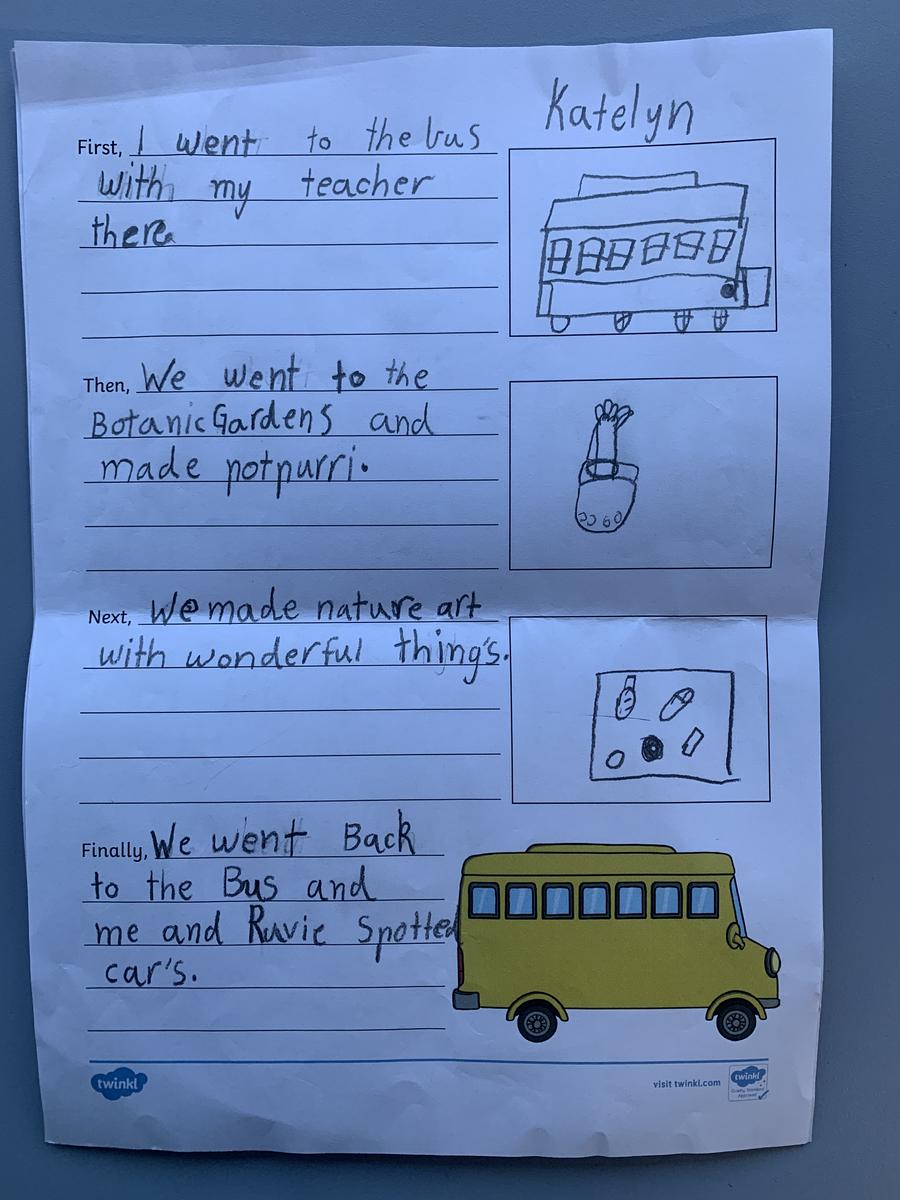 Katelyn
First, I went to the bus
with my teacher
there
Then, We went to the
Botanic Gardens and
made potpurri.
Next, We made nature art
with wonderful thing's.
Finally, We went Back
to the Bus and
me and Ruvie Spotted
car's.
twinkl
visit twinkl.com
twinkl
Quality Standard
Approved